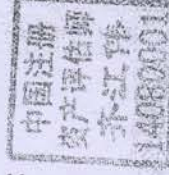 中国注册
资产评估师
齐江伟
14082001